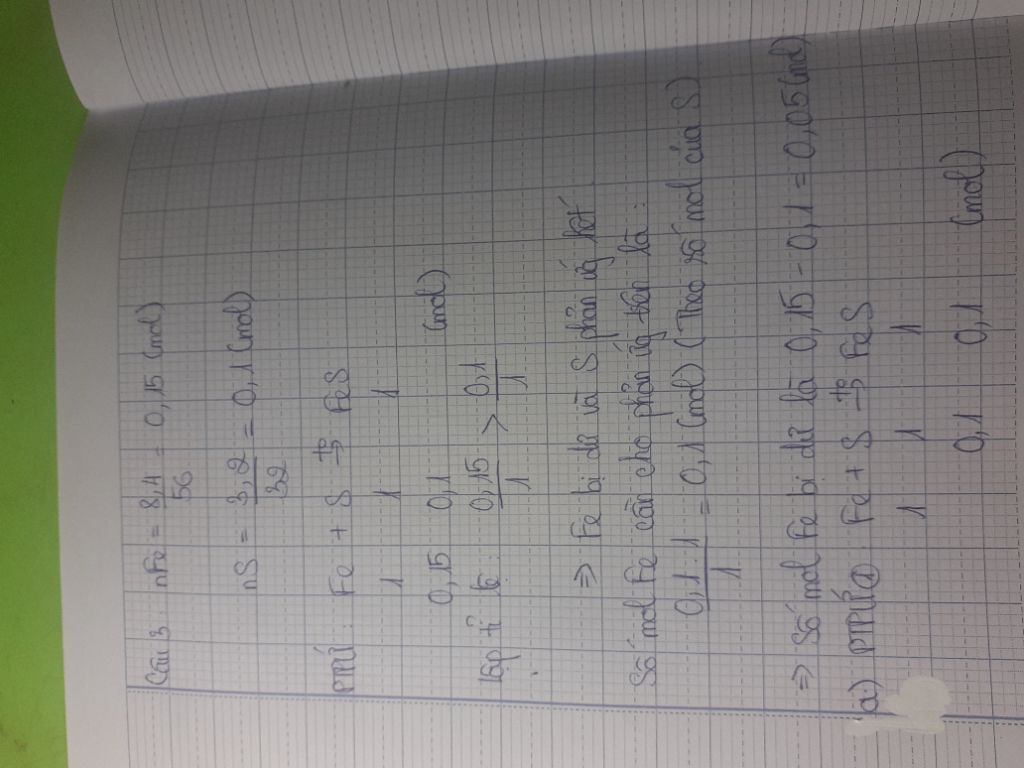 Câu 3 nFe = 8,4 / 56 = 0,15 (mol)
nS = 3,2 / 32 = 0,1 (mol)
PTPỨ: Fe + S →t° FeS
1 1 1
0,15 0,1 (mol)
lập tỉ lệ: 0,15 / 1 > 0,1 / 1
=> Fe bị dư và S phản ứng hết
Số mol Fe cần cho phản ứng trên là:
0,1 . 1 / 1 = 0,1 (mol) (Theo số mol của S)
=> Số mol Fe bị dư là 0,15 - 0,1 = 0,05 (mol)
a) PTPỨ: Fe + S →t° FeS
1 1 1
0,1 0,1 (mol)